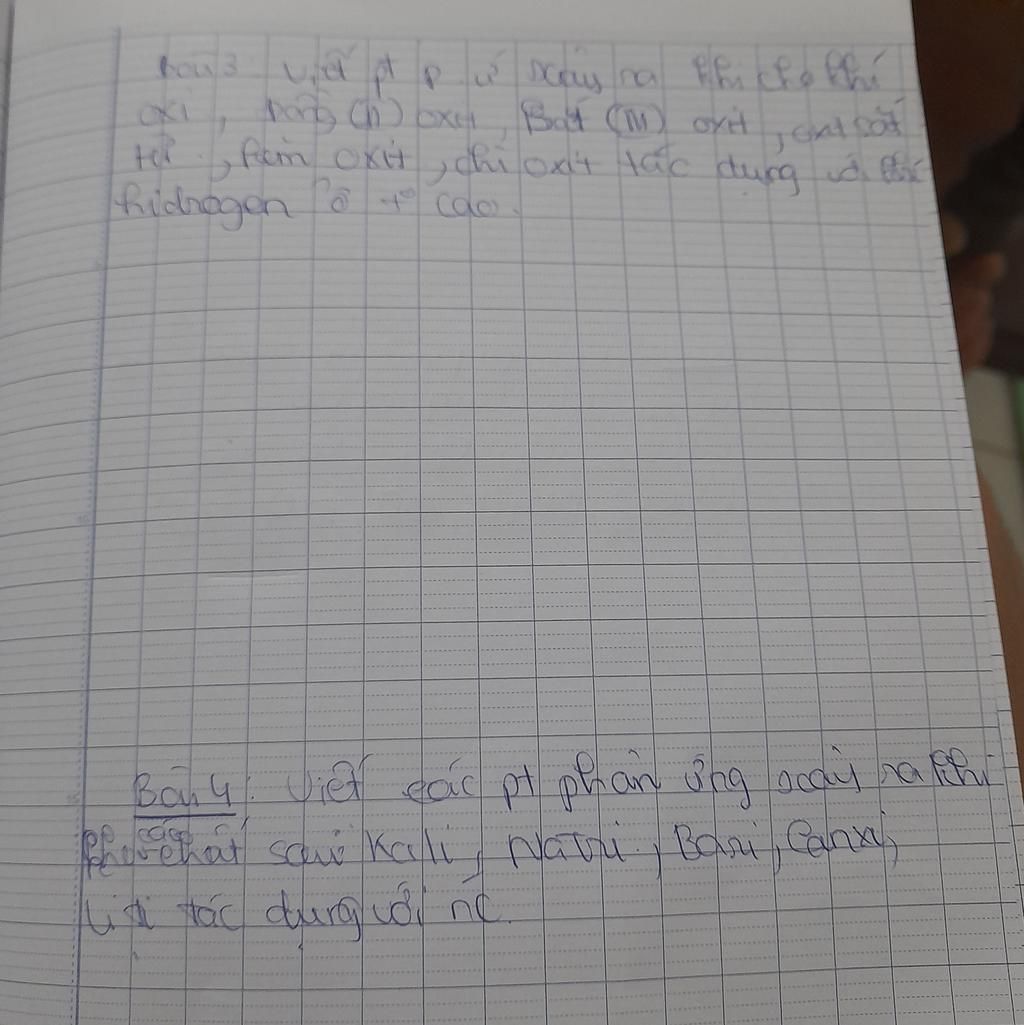 bài 3 viết pt p ứ xảy ra khi cho khí
oxi, (II) oxit, Sắt (III) oxit, oxit sắt
từ, kẽm oxit, chì oxit tác dụng với khí
hidrogen ở t° cao.
Bài 4: Viết các pt phản ứng xảy ra khi
cho các chất sau Kali, Natri, Bari, Canxi,
Liti tác dụng với nc.